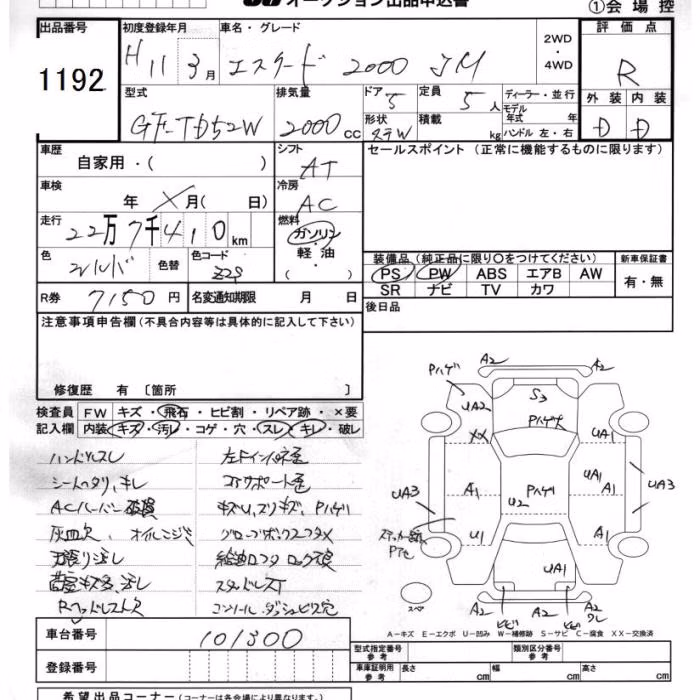 オークション出品申込書
①会場控
出品番号
1192
初度登録年月
H 11 3月
車名・グレード
エスクード 2000 JM
2WD
・
4WD
評価点
R
外装 内装
D D
型式
GF-TD52W
排気量
2000 CC
ドア 5
定員 5人
形状 ステW
積載 kg
ディーラー・並行
モデル
年式 年
ハンドル 左・右
車歴
自家用・( )
シフト
AT
セールスポイント (正常に機能するものに限ります)
車検
年 X 月( 日)
冷房
AC
走行
22万7千410km
燃料
ガソリン
・
軽油
・
色
シルバ
色替
色コード
Z2S
装備品(純正品に限り〇をつけてください)
PS PW ABS エアB AW
SR ナビ TV カワ
新車保証書
有・無
R券 7150円
名変通知期限 月 日
後日品
注意事項申告欄(不具合内容等は具体的に記入して下さい)
修復歴 有 〔箇所 〕
検査員
記入欄
FW キズ・飛石・ヒビ割・リペア跡・×要
内装 キズ・汚レ・コゲ・穴・スレ・キレ・破レ
ハンドルスレ
シートヘタリ、キレ
ACルーバー破損
灰皿欠、オイルニジミ
天張り汚レ
荷室キズ多、汚レ
Rヘッドレスト欠
左Fインパネ色
コアサポート色
キズU、スリキズ、Pハゲ
グローブボックスフタX
給油口フタ ロック不良
スタッドレスT
コンソール、ダッシュビス穴
Pハゲ A2 A2
S3
UA2 Pハゲ大
XX UA1
UA1
A1 Pハゲ A1
U2
UA3 UA3
ステッカー跡
Pサビ
U1 A1
UA1
スペア
A2 A2 A2
ヒビ ヒビ ワレ
A－キズ E－エクボ U－凹み W－補修跡 S－サビ C－腐食 XX－交換済
車台番号
101300
登録番号
型式指定番号
参考
類別区分番号
参考
車庫証明用
参考
長さ cm 幅 cm 高さ cm
希望出品コーナー (コーナーは各会場により異なります。)